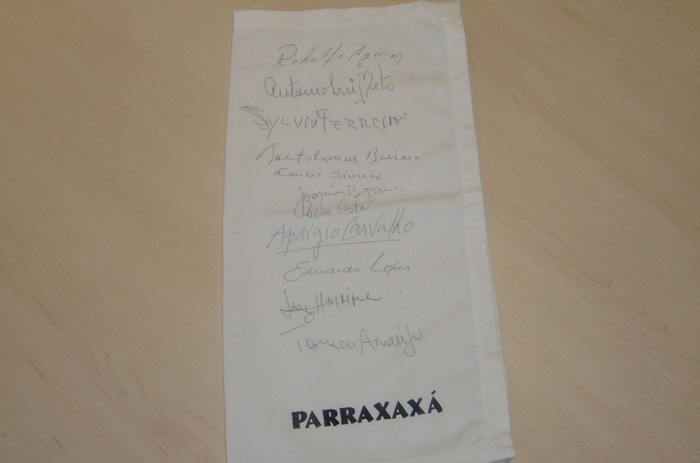 Rodolfo Aguiar
Antonio Luiz Neto
Sylvio Ferreira
Bartolomeu Bueno
Carlos Simeão
Joaquim
Costa
Aprigio Carvalho
Eduardo Lopes
Luiz
Tonico Araújo
PARRAXAXÁ